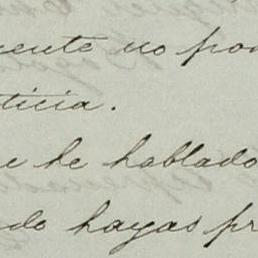 uente no por
ticia.
e he hablado
do hayas pr